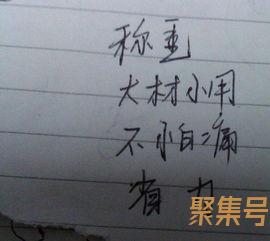 称重
大材小用
不怕痛
省力
聚集号